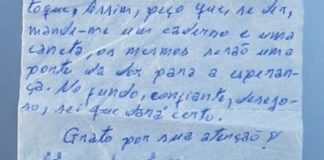 toque, Assim, peço que, se der,
mande-me um caderno e uma
caneta, os mesmos serão uma
ponte da dor para a esperan-
ça. No fundo, confiante, desejo-
so, sei que dará certo.
Grato por sua atenção!